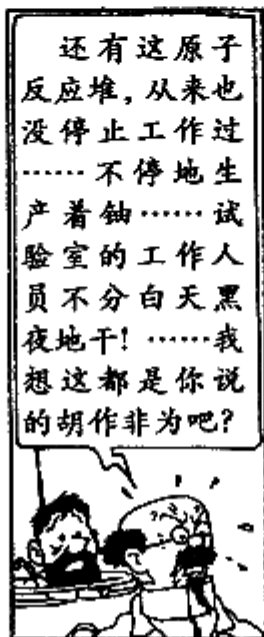 还有这原子
反应堆，从来也
没停止工作过
……不停地生
产着铀……试
验室的工作人
员不分白天黑
夜地干！……我
想这都是你说
的胡作非为吧？